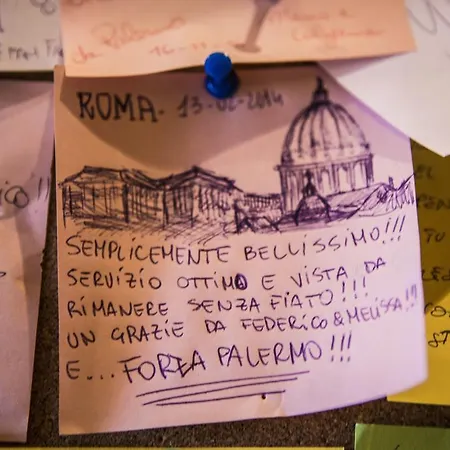 ROMA - 13-02-2014
SEMPLICEMENTE BELLISSIMO!!!
SERVIZIO OTTIMO E VISTA DA
RIMANERE SENZA FIATO!!!
UN GRAZIE DA FEDERICO & MELISSA!!!
E... FORZA PALERMO!!!